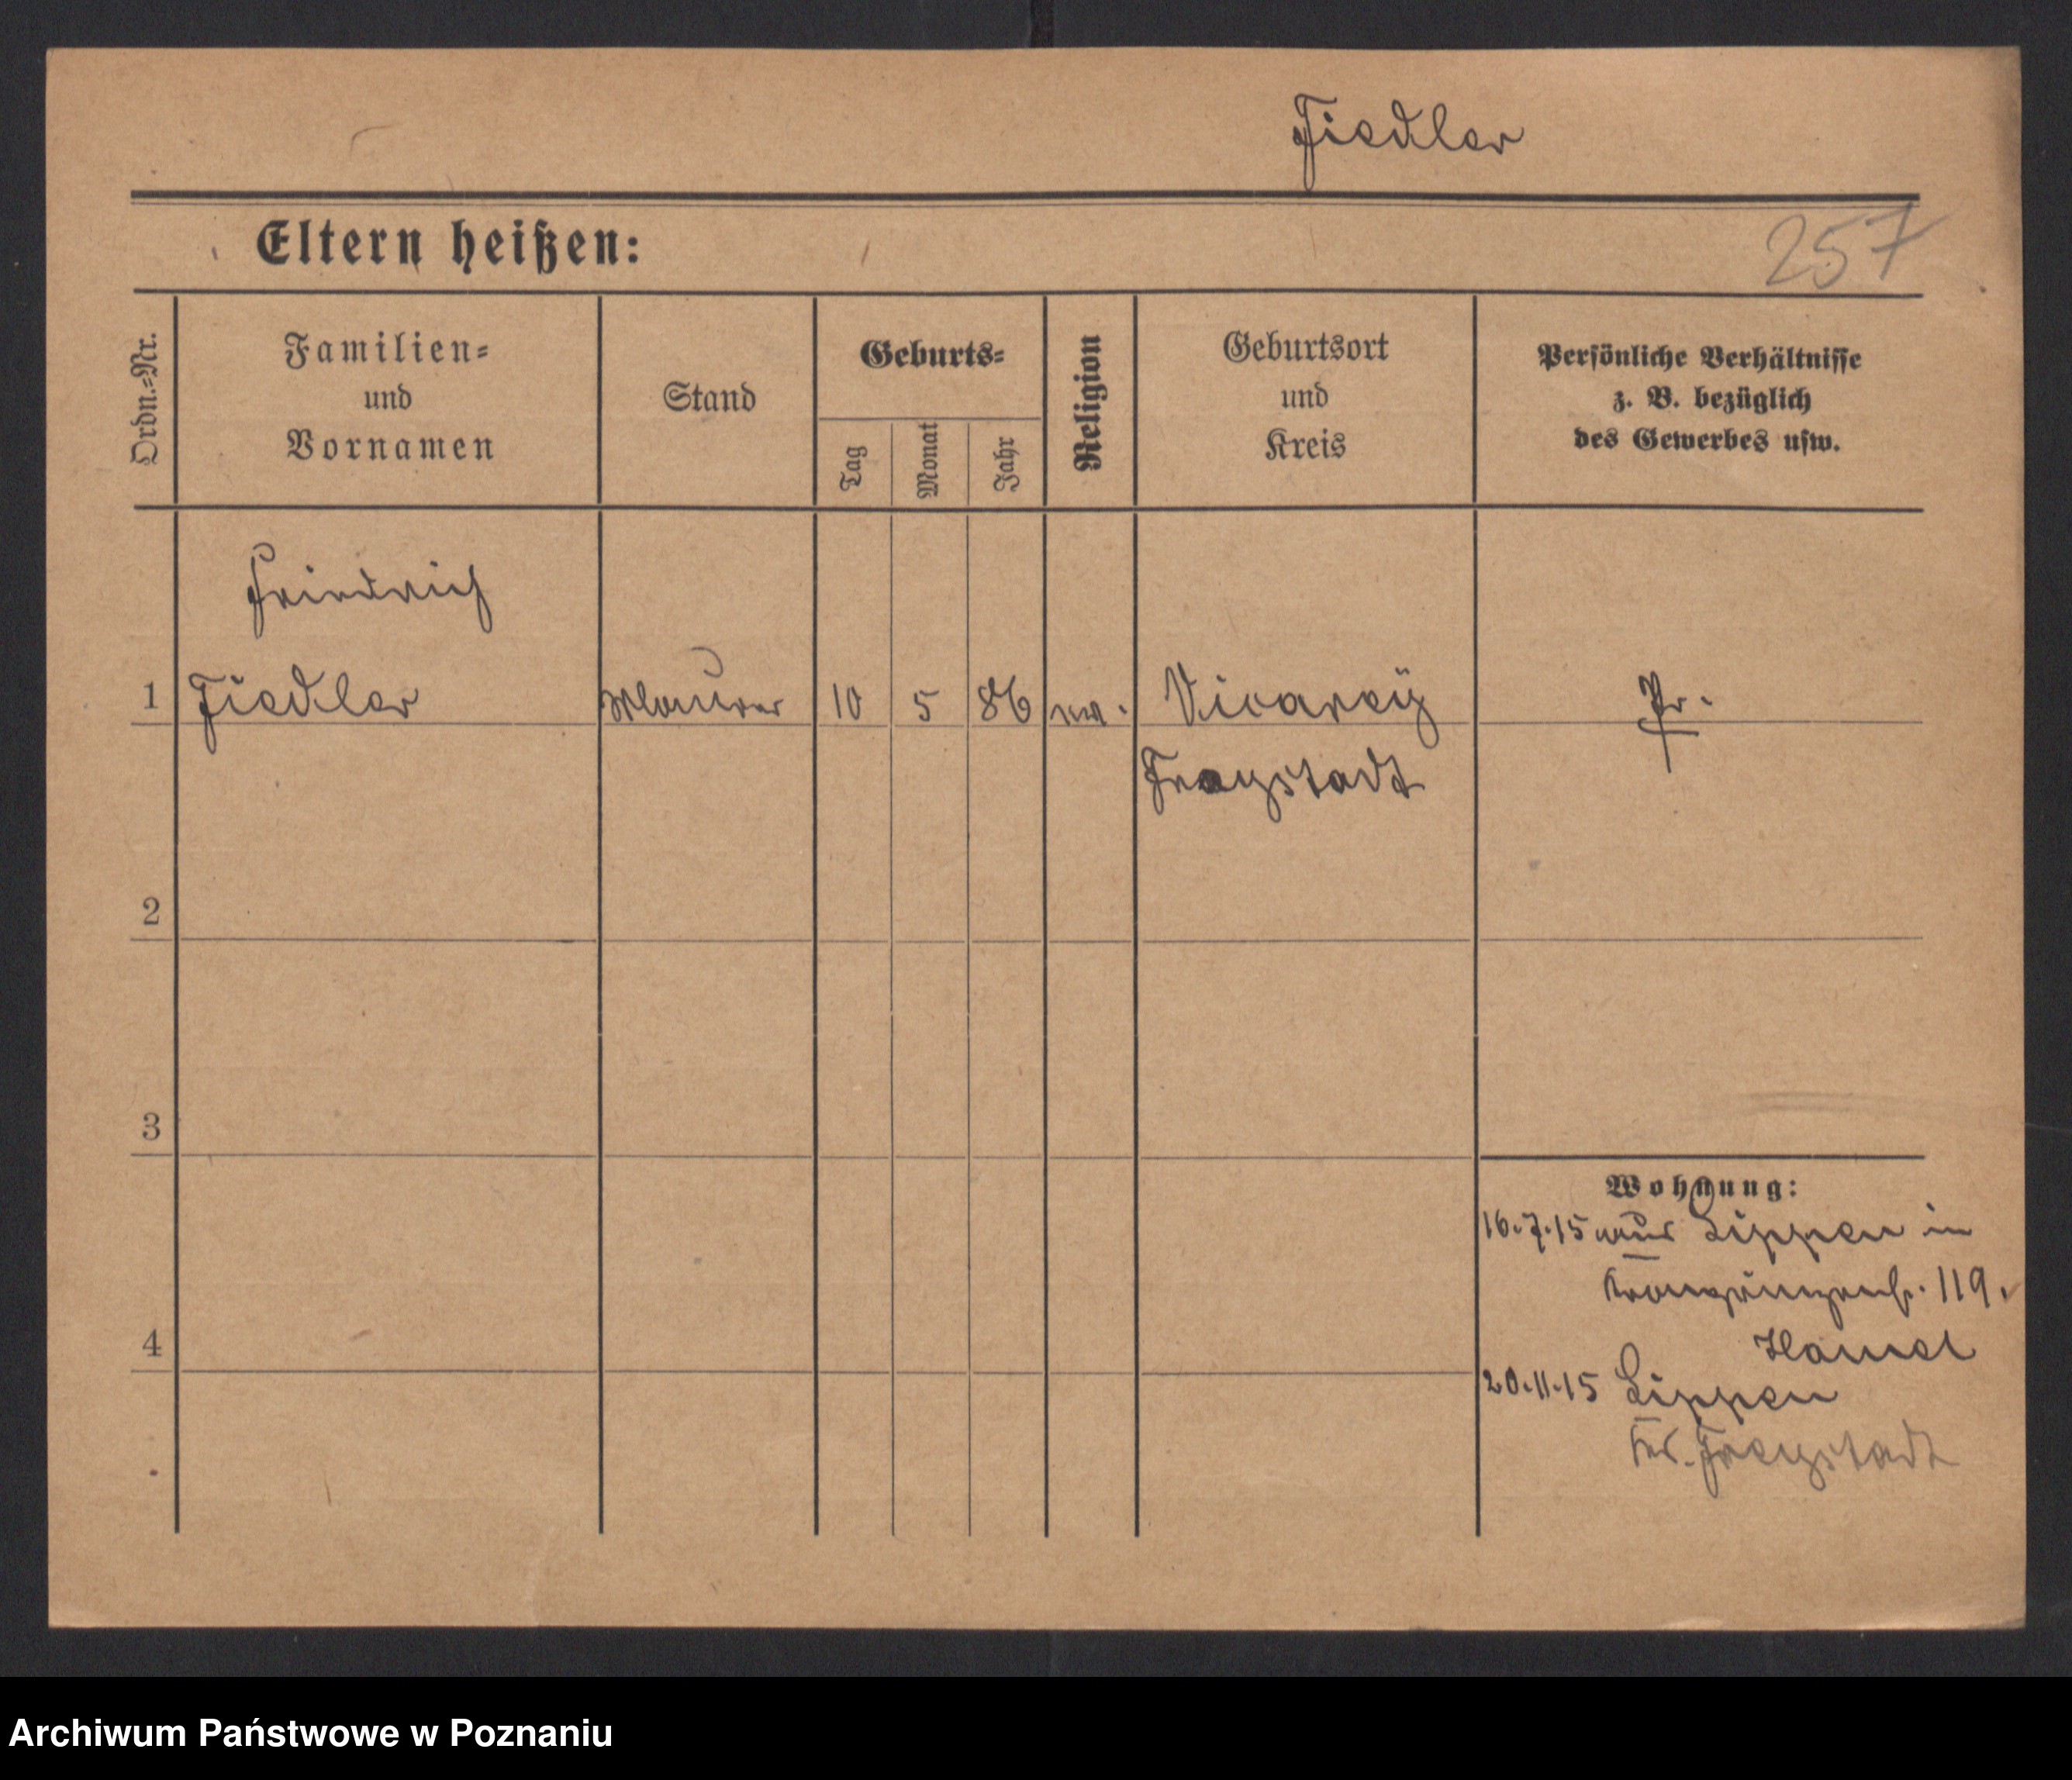 Fiedler
Eltern heißen:
257
Ordn.=Nr.
Familien=
und
Vornamen
Stand
Geburts=
Tag
Monat
Jahr
Religion
Geburtsort
und
Kreis
Persönliche Verhältnisse
z. B. bezüglich
des Gewerbes usw.
Friedrich
1 Fiedler Maurer 10 5 86 ev. Vicarey Pr.
Freystadt
2
3
Wohnung:
16.7.15 aus Lippen in
Kronprinzenstr. 119.
4
Hamel
20.11.15 Lippen
Krs. Freystadt
Archiwum Państwowe w Poznaniu